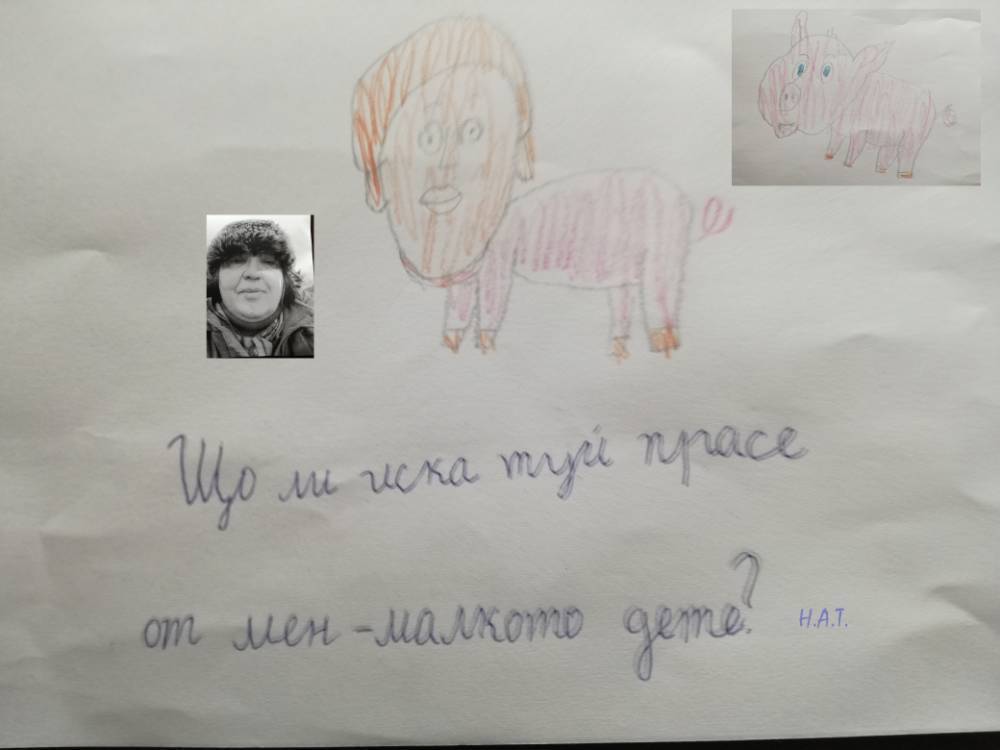 Що ли иска туй прасе
от мен - малкото дете? Н.А.Т.